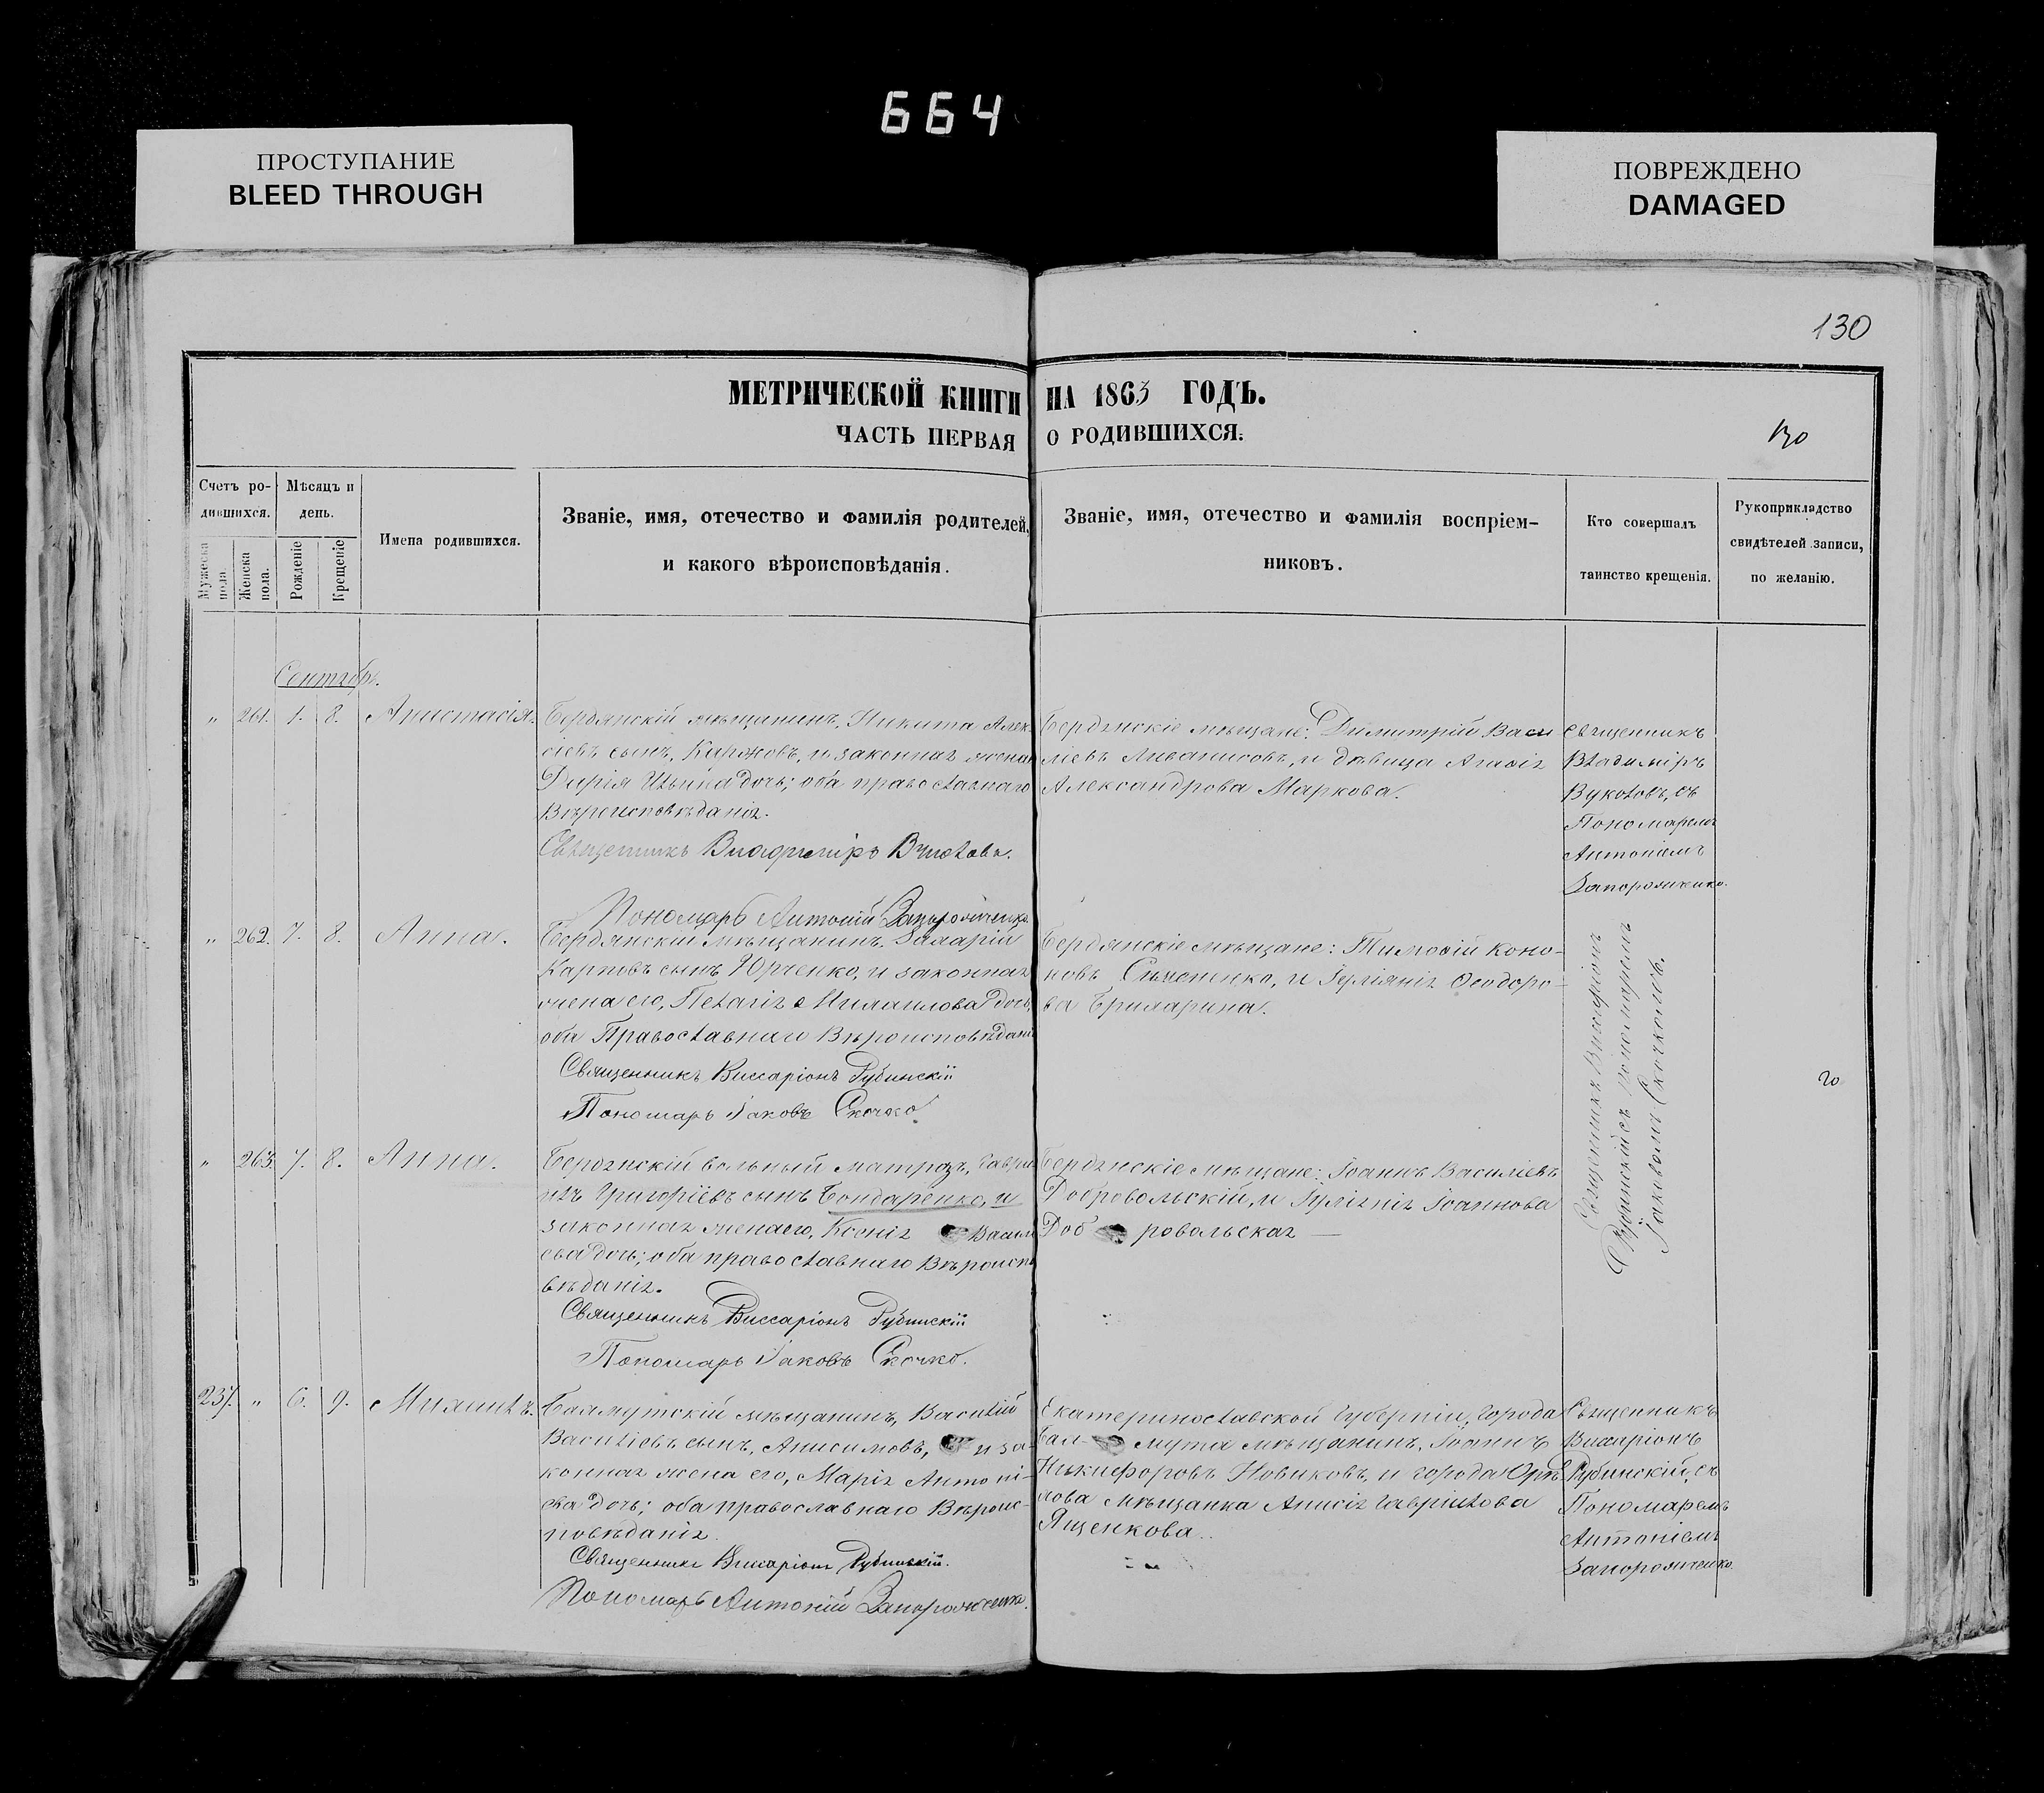 664
ПРОСТУПАНИЕ
BLEED THROUGH
ПОВРЕЖДЕНО
DAMAGED
130
МЕТРИЧЕСКОЙ КНИГИ НА 1863 ГОДЪ.
ЧАСТЬ ПЕРВАЯ О РОДИВШИХСЯ.
130
Счетъ ро-
дившихся.
Мужеска пола.
Женска пола.
Мѣсяцъ и
день.
Рожденіе
Крещеніе
Имена родившихся.
Званіе, имя, отечество и фамилія родителей,
и какого вѣроисповѣданія.
Званіе, имя, отечество и фамилія воспріем-
никовъ.
Кто совершалъ
таинство крещенія.
Рукоприкладство
свидѣтелей записи,
по желанію.
Сентябр.
" 261. 1. 8. Анистасія.
Бердянскій мѣщанинъ, Никита Алек
сіевъ сынъ, и законная жена
Дарія Ильина дочь; оба православнаго
Вѣроисповѣданія.
Священникъ Владиміръ Вуколовъ.
Пономарь Антоній Запорожченко.
Бердянскіе мѣщане: Димитрій Васи
ліевъ и дѣвица
Александрова Маркова.
Священникъ
Владиміръ
Вуколовъ, съ
Пономаремъ
Антоніемъ
Запорожченко.
" 262. 7. 8. Анна.
Бердянскій мѣщанинъ, Захарій
Карповъ сынъ Юрченко, и законная
жена его, Пелагія Михаилова дочь,
оба Православнаго Вѣроисповѣдані
Священникъ Виссаріонъ Рубинскій
Пономарь Іаковъ Скочко
Бердянскіе мѣщане: Тимофій Коно-
новъ и Іуліянія Ѳеодоро-
ва
Священникъ Виссаріонъ
Рубинскій съ Пономаремъ
Іаковомъ Скочкомъ.
20
" 263. 7. 8. Анна.
Бердянскій вольный матрозъ, Гаври
илъ Григоріевъ сынъ Бондаренко, и
законная жена его, Ксенія Васил
ева дочь; оба православнаго Вѣроиспо
вѣданія.
Священникъ Виссаріонъ Рубинскій
Пономарь Іаковъ Скочко.
Бердянскіе мѣщане: Іоаннъ Василіевъ
Добровольскій, и Іуліянія Іоаннова
Доб ровольская —
237. " 6. 9. Михаилъ.
Бахмутскій мѣщанинъ, Василій
Василіевъ сынъ, Анисимовъ, и за-
конная жена его, Марія Антоні-
ева дочь; оба православнаго Вѣроис-
повѣданія.
Священникъ Виссаріонъ Рубинскій.
Пономарь Антоній Запорожченко.
Екатеринославской Губерніи, города
Бах- мута мѣщанинъ, Іоаннъ
Никифоровъ Новиковъ, и города
мѣщанка Анисія Гавріилова
Ященкова.
Священникъ
Виссаріонъ
Рубинскій, съ
Пономаремъ
Антоніемъ
Запорожченко.